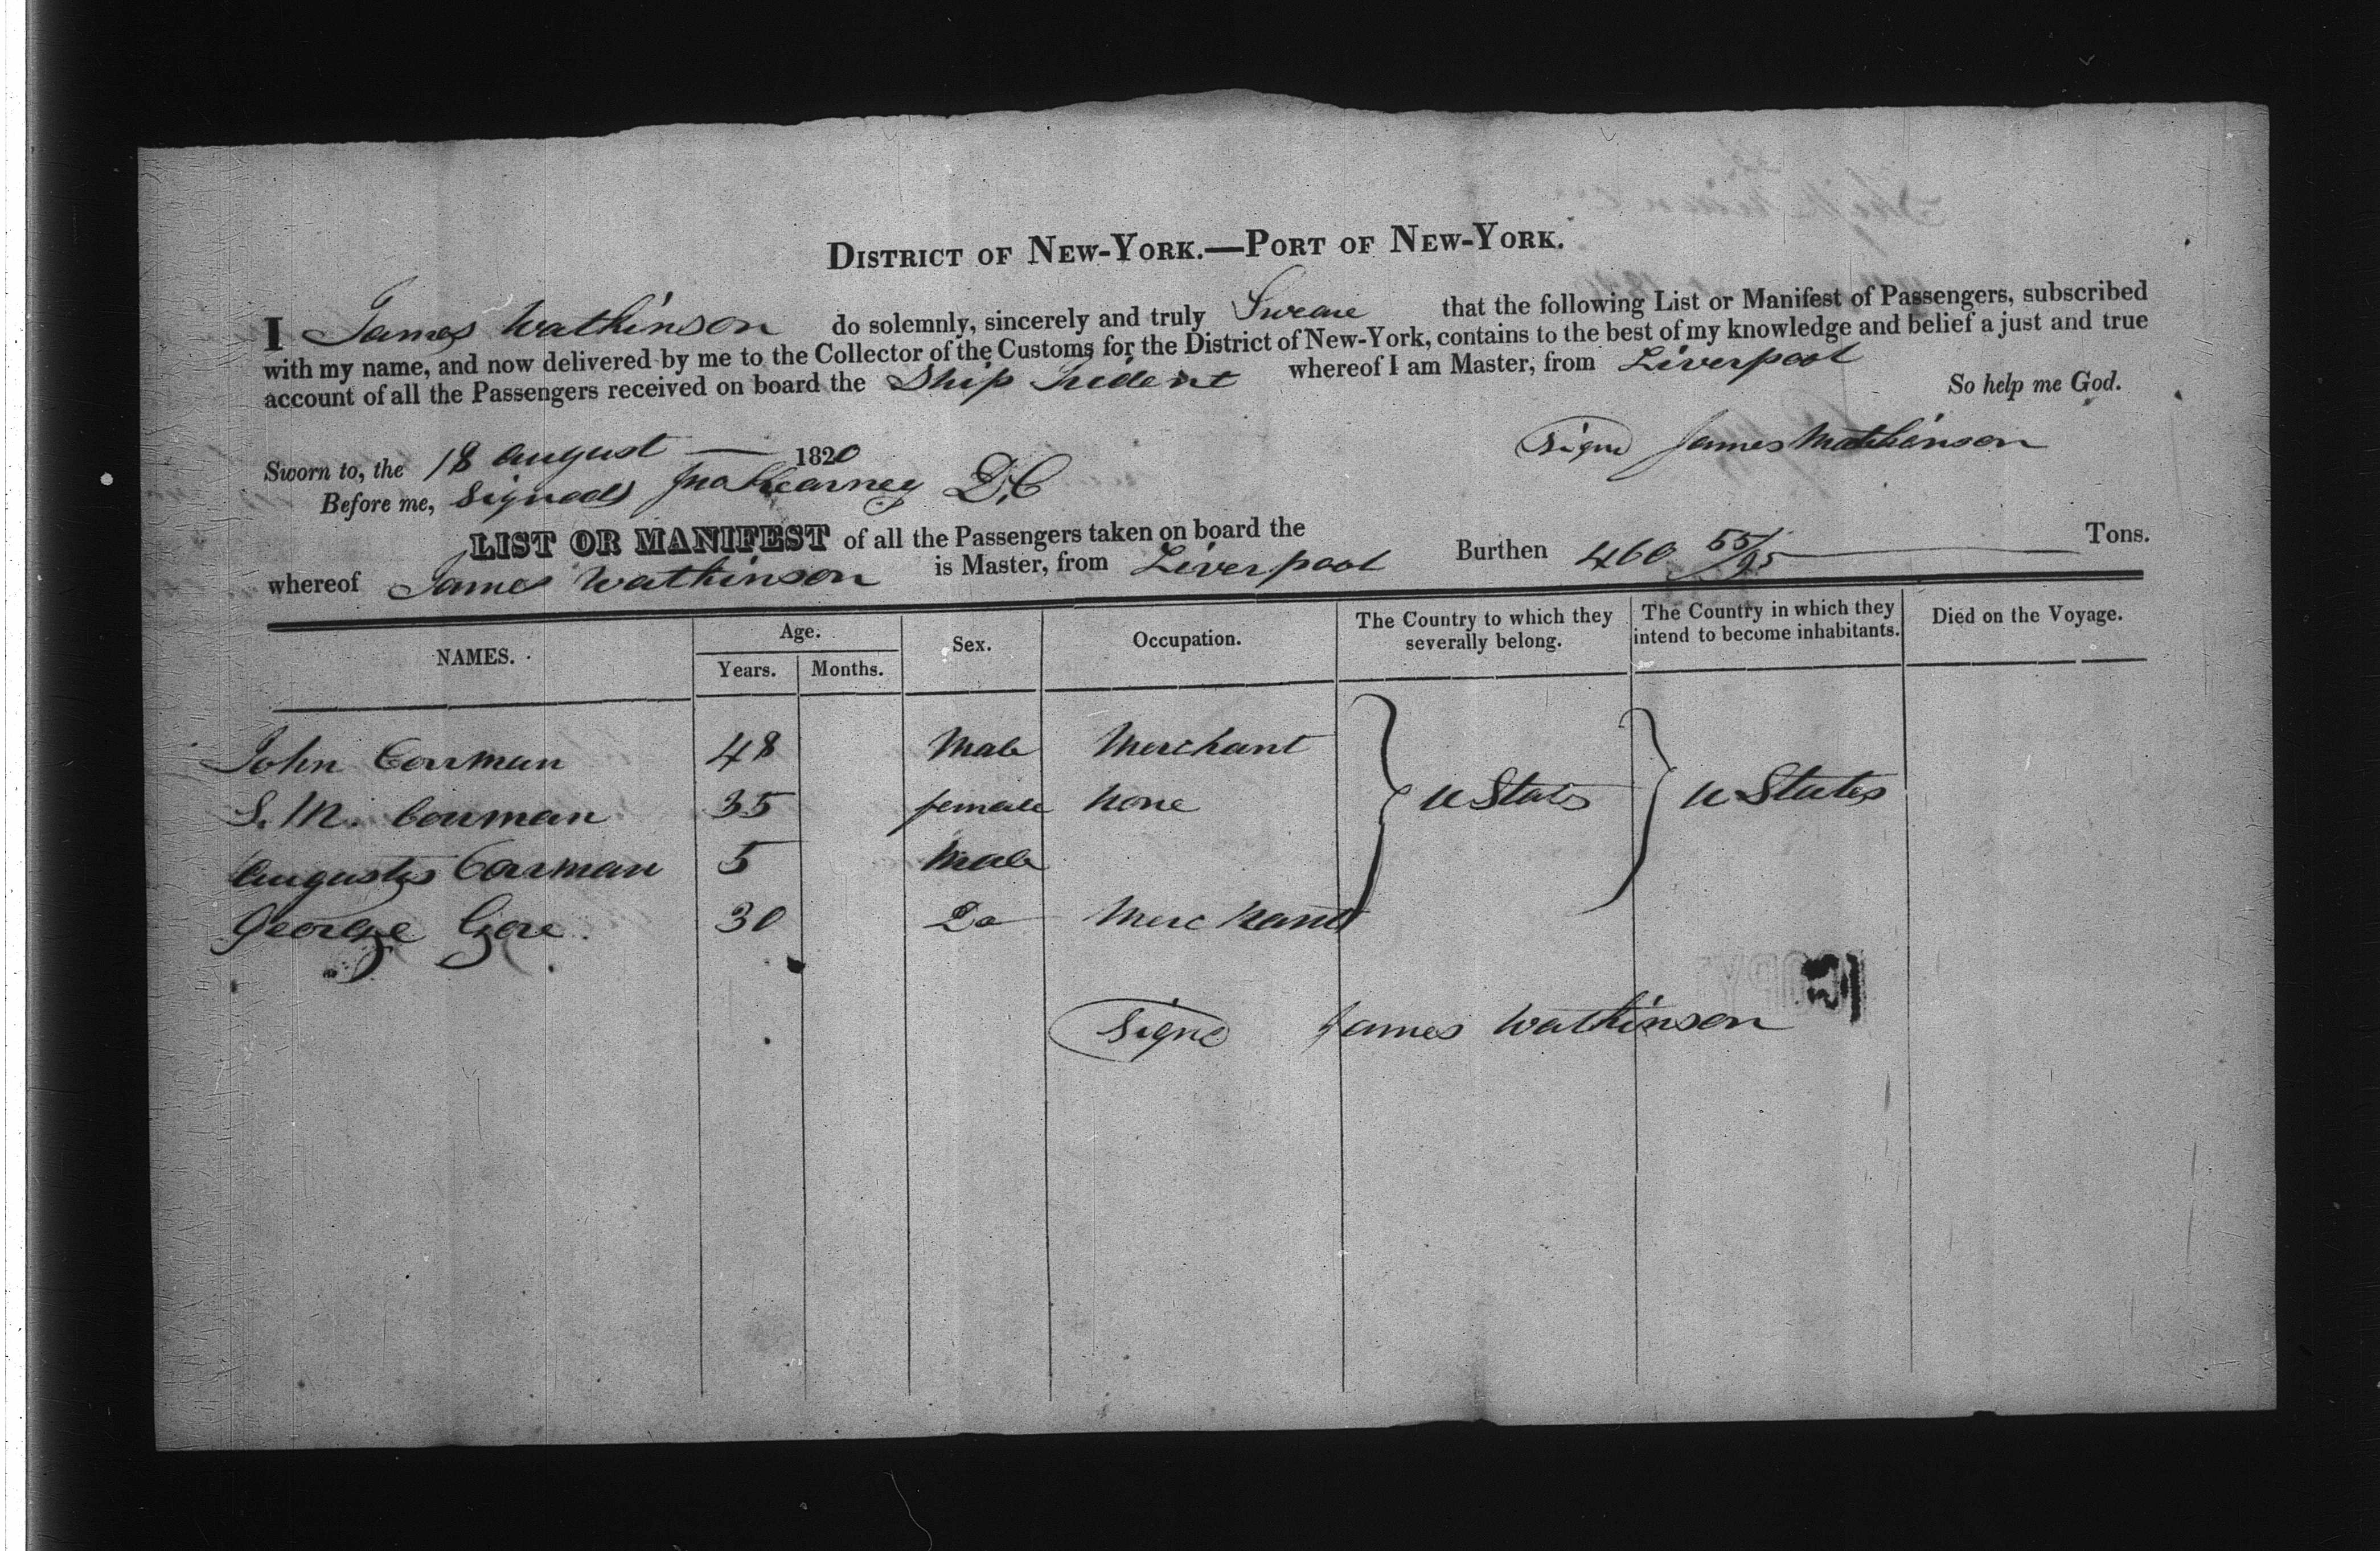 DISTRICT OF NEW-YORK.—PORT OF NEW-YORK.
I James Watkinson do solemnly, sincerely and truly Sweare that the following List or Manifest of Passengers, subscribed
with my name, and now delivered by me to the Collector of the Customs for the District of New-York, contains to the best of my knowledge and belief a just and true
account of all the Passengers received on board the Ship Trident whereof I am Master, from Liverpool
So help me God.
Sworn to, the 18 August — 1820
Signd James Watkinson
Before me, Signed Jno Kearney D.C
LIST OR MANIFEST of all the Passengers taken on board the
whereof James Watkinson is Master, from Liverpool Burthen 460 55/95 Tons.
NAMES. Age. Years. Months. Sex. Occupation. The Country to which they severally belong. The Country in which they intend to become inhabitants. Died on the Voyage.
John Corman 48 Male Merchant
S. M. Corman 35 female None U States U States
Augustus Corman 5 Male
George Gore 30 Do Merchant
Signd James Watkinson